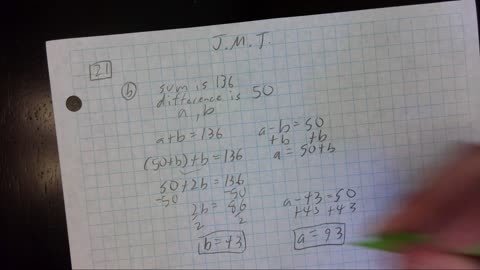 J.M.J.
21
(b) sum is 136
difference is 50
a, b
a+b=136
(50+b)+b=136
50+2b=136
-50 -50
2b=86
2 2
b=43
a-b=50
+b +b
a=50+b
a-43=50
+43 +43
a=93